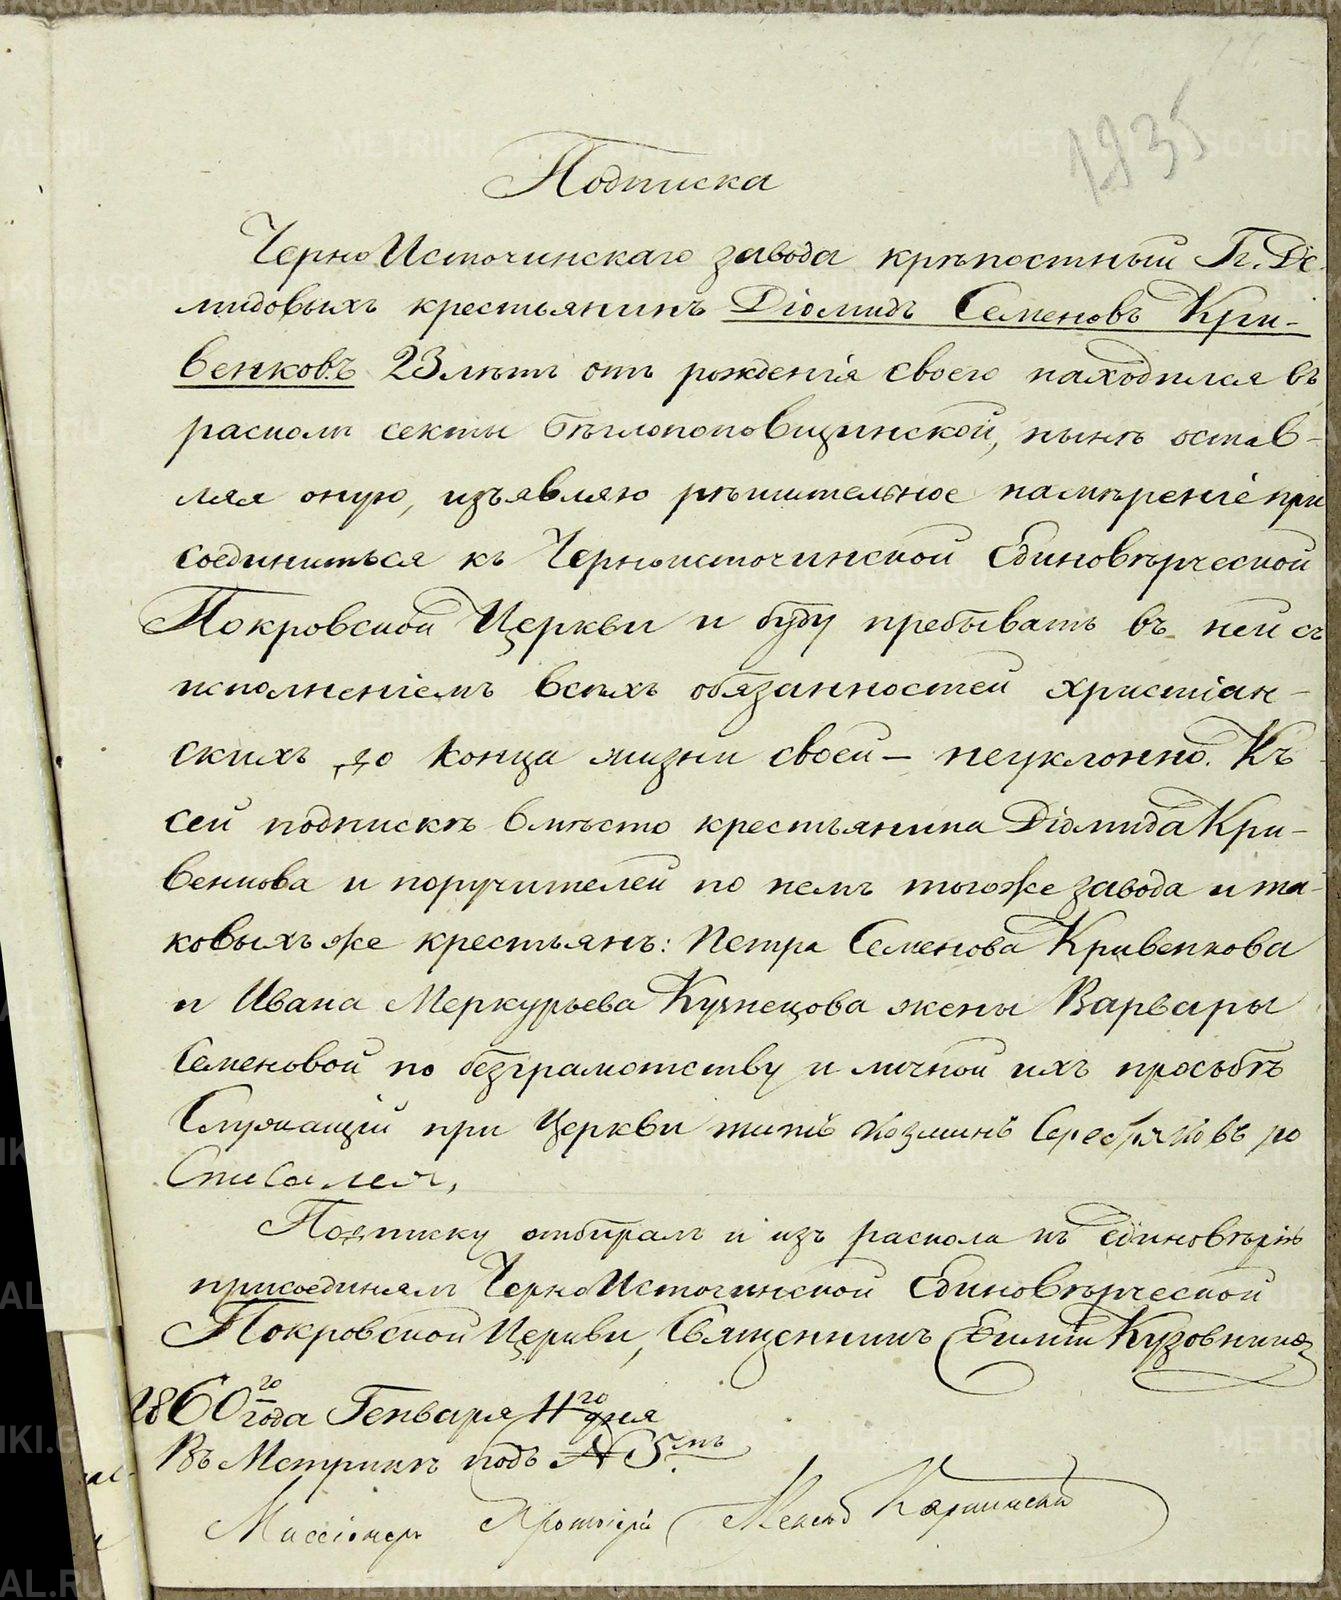 1935
Подписка
ЧерноИсточинскаго завода крѣпостный Гг. Де-
мидовыхъ крестьянинъ Діомидъ Семеновъ Кри-
венковъ 23 лѣтъ отъ рожденія своего находился въ
расколѣ секты бѣглопоповщинской, нынѣ остав-
ляя оную, изъявляю рѣшительное намѣреніе при
соединиться къ Черноисточинской Единовѣрческой
Покровской Церкви и буду пребывать въ ней съ
исполненіемъ всѣхъ обязанностей христіан-
скихъ до конца жизни своей – неуклонно. Къ
сей подпискѣ вмѣсто крестьянина Діомида Кри-
венкова и поручителей по немъ тогоже завода и та-
ковыхъ же крестьянъ: Петра Семенова Кривенкова
и Ивана Меркурьева Кузнецова жены Варвары
Семеновой по безграмотству и личной ихъ просьбѣ
Служащій при Церкви титъ Козминъ Серебряковъ ро
списался,
Подписку отбиралъ и изъ раскола къ единовѣрію
присоединялъ ЧерноИсточинской Единовѣрческой
Покровской Церкви, Священникъ Евлтій Кузовников
1860го года Генваря 11го дня
Въ Метрикѣ подъ N 5мъ
Миссіонеръ Протоіерей